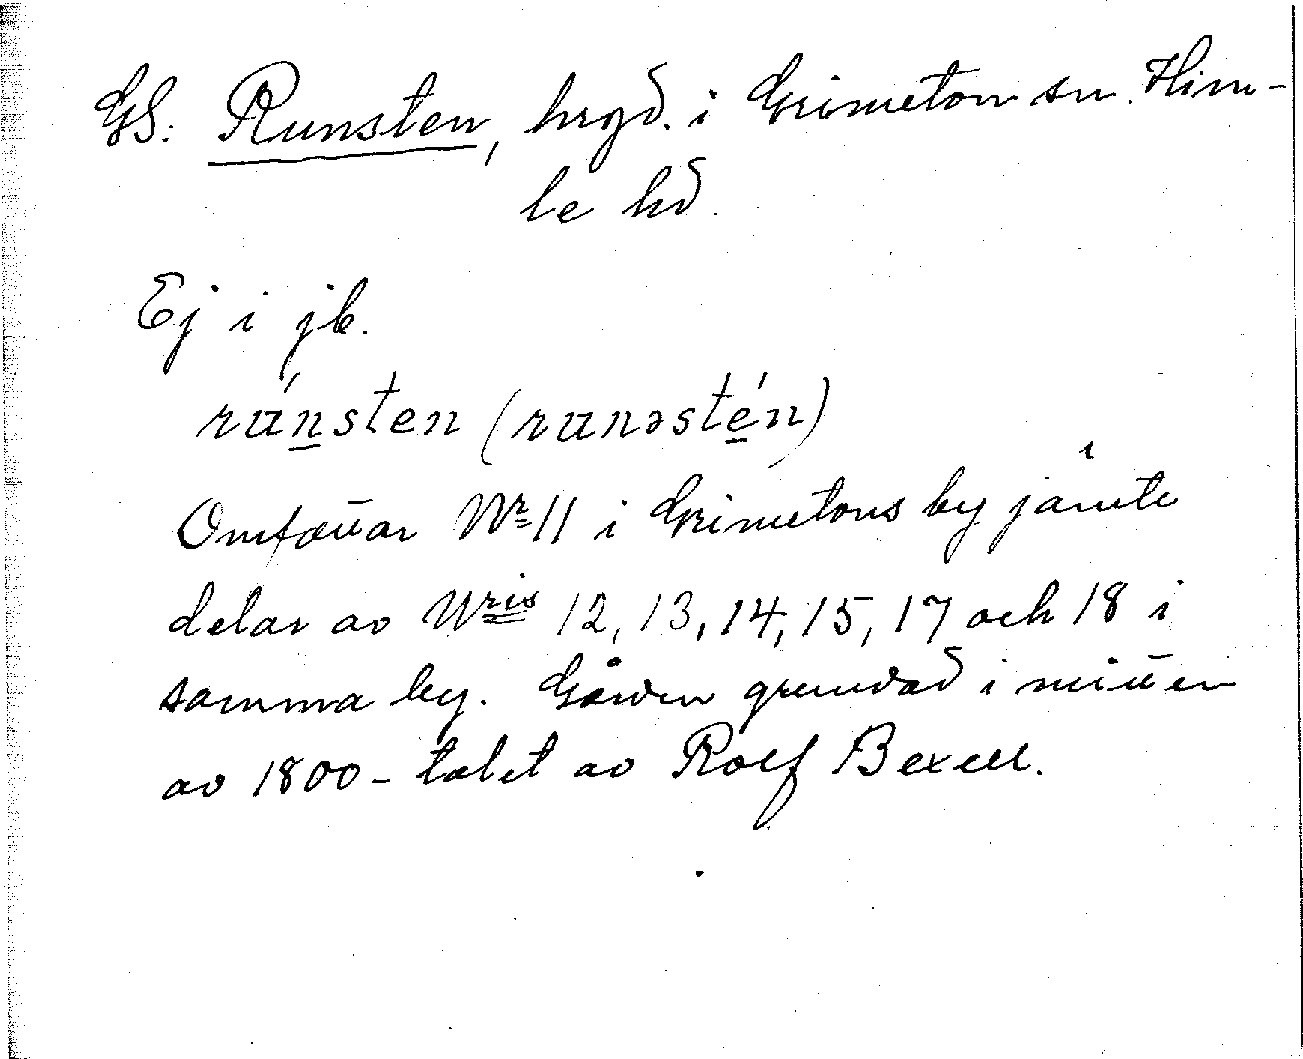 GS. Runsten, hrgd. i Grimeton sn. Him-
le hd.
Ej i jb.
rúnsten (runəstén)
Omfattar Nr 11 i Grimetons by jämte
delar av Nris 12, 13, 14, 15, 17 och 18 i
samma by. Gården grundad i mitten
av 1800-talet av Rolf Bexell.